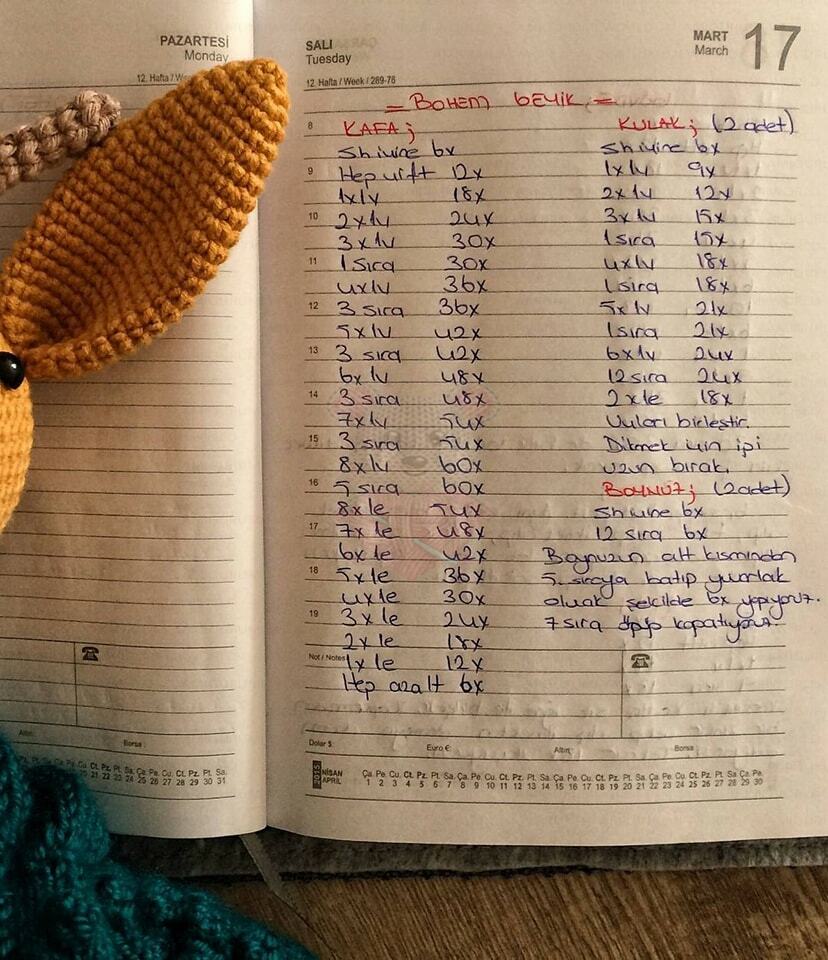 PAZARTESİ
Monday
12. Hafta / Week
SALI
Tuesday
12. Hafta / Week / 289-76
MART
March
17
= BOHEM GEYİK =
8 KAFA;
Sihirine 6x
9 Hep çift 12x
1x1v 18x
10 2x1v 24x
3x1v 30x
11 1 sıra 30x
4x1v 36x
12 3 sıra 36x
5x1v 42x
13 3 sıra 42x
6x1v 48x
14 3 sıra 48x
7x1v 54x
15 3 sıra 54x
8x1v 60x
16 5 sıra 60x
8x1e 54x
17 7x1e 48x
6x1e 42x
18 5x1e 36x
4x1e 30x
19 3x1e 24x
2x1e 18x
Not / Notes 1x1e 12x
Hep azalt 6x
KULAK; (2 adet)
Sihirine 6x
1x1v 9x
2x1v 12x
3x1v 15x
1 sıra 15x
4x1v 18x
1 sıra 18x
5x1v 21x
1 sıra 21x
6x1v 24x
12 sıra 24x
2x1e 18x
Uçları birleştir.
Dikmek için ipi
uzun bırak.
BOYNUZ; (2 adet)
Sihirine 6x
12 sıra 6x
Boynuzun alt kısmından
5. sıraya batıp yuvarlak
olacak şekilde 6x yapıyoruz.
7 sıra örüp kapatıyoruz.
Altın: Borsa :
Dolar $: Euro €: Altın: Borsa :
2015 NİSAN APRIL
Ça. Pe. Cu. Ct. Pz. Pt. Sa. Ça. Pe. Cu. Ct. Pz. Pt. Sa. Ça. Pe. Cu. Ct. Pz. Pt. Sa. Ça. Pe. Cu. Ct. Pz. Pt. Sa. Ça. Pe.
1 2 3 4 5 6 7 8 9 10 11 12 13 14 15 16 17 18 19 20 21 22 23 24 25 26 27 28 29 30